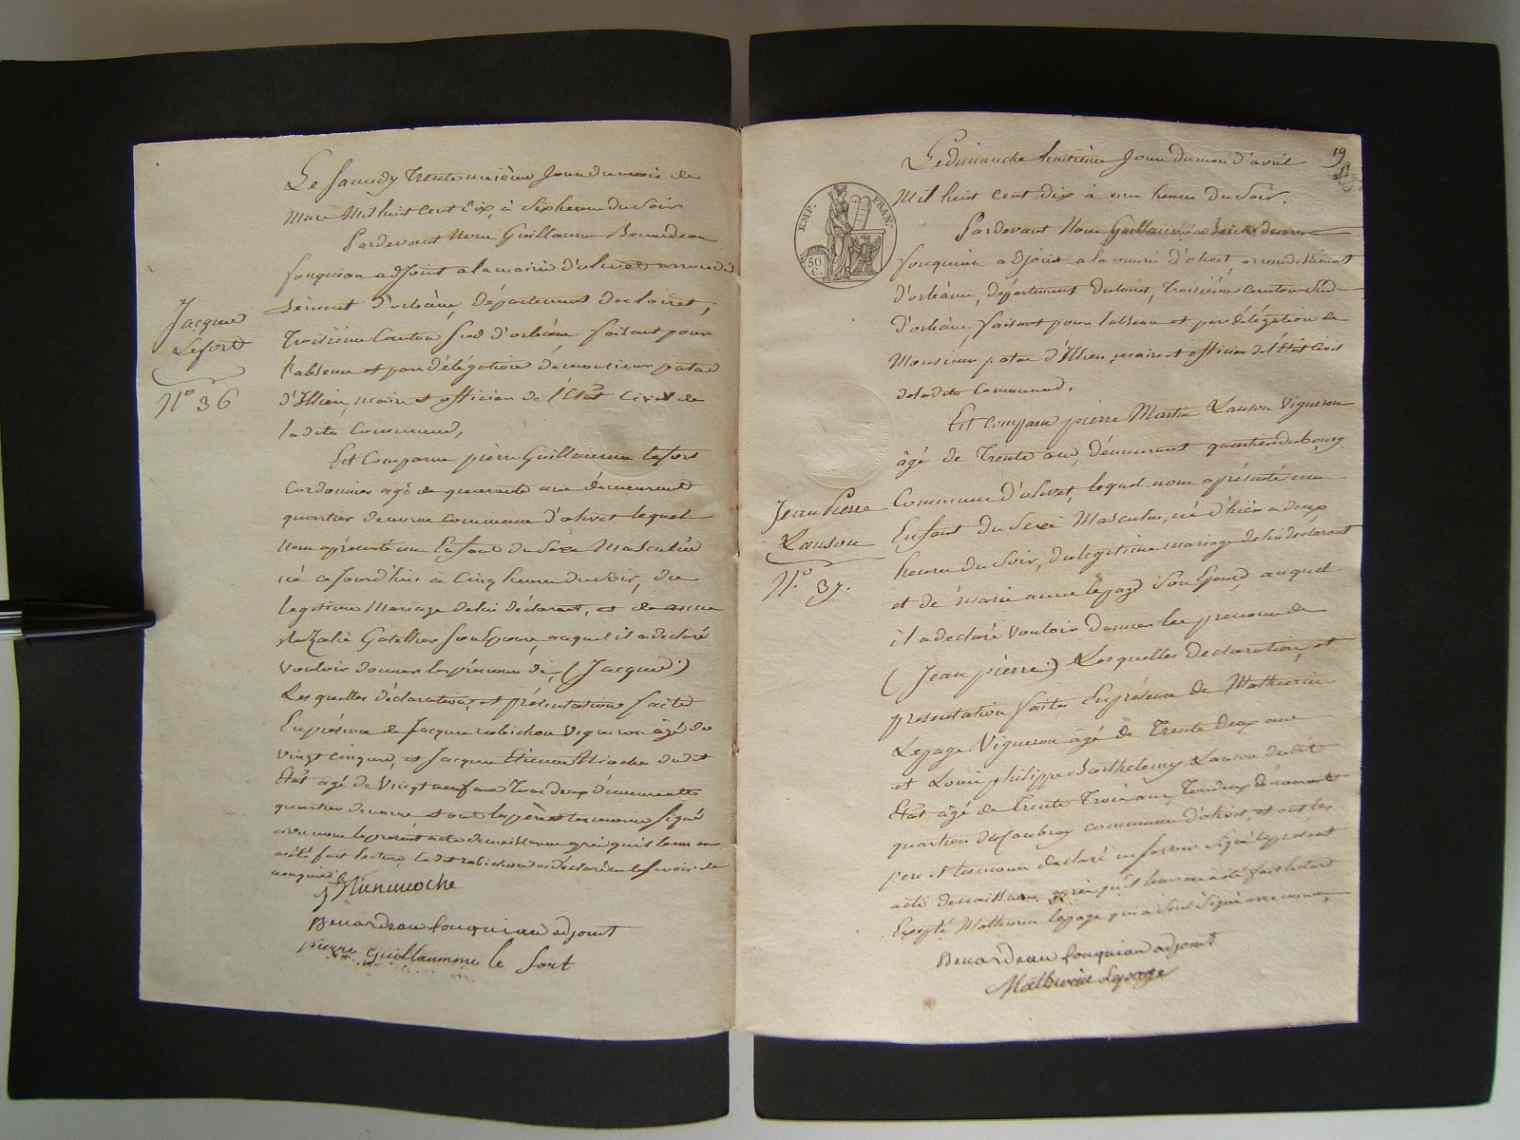 Le Samedy trente unième Jour du mois de
Mars Mil huit cent dix, à Six heures du Soir
Pardevant Nous Guillaume Benardeau
fouquiau adjoint a la mairie d'olivet arrondis
sement d'orléans, département du Loiret,
Troisième Canton Sud d'orléans faisant pour
l'absence et par délégation de monsieur patas
d'Illiers, maire et officier de l'État Civil de
ladite Commune,
Est Comparu pierre Guillaumme lefort
Cordonnier agé de quarante ans demeurant
quartier de commune d'olivet lequel
Nous a présenté un Enfant du Sexe Masculin
né cejourd'hui à Cinq heures du Soir, du
legitime Mariage de lui déclarant, et de anne
Gatellier son Epouse, auquel il a declaré
vouloir donner les prénoms de (Jacques)
Les quelles déclaration et présentation faites
En présence de Jacques robichon Vigneron âgé de
vingt cinq ans, et Jacques Etienne Mioche du dit
État âgé de Vingt neuf ans Tous deux demeurants
quartier et ont les père et temoins Signé
avec nous le présent acte de naissance après qu'il leur en
a été fait lecture, ledit robichon a déclaré ne le savoir de
ce enquis
J Etienne mioche
Benardeau fouquiau adjoint
pierre guillaumme le fort
Jacques
Lefort
N° 36
19
Le dimanche Jour du mois d'avril
Mil huit cent dix à une heure du Soir.
EMP. FRAN.
50 C.
Pardevant Nous Guillaume Benardeau
fouquiau adjoint a la mairie d'olivet arrondissement
d'orléans, département du loiret, Troisième Canton Sud
d'orléans, faisant pour l'absence et par délégation de
Monsieur patas d'Illiers, maire et officier de l'État Civil
de ladite Commune.
Est Comparu pierre Martin Lanson Vigneron
âgé de Trente ans, demeurant quartier du bourg
Commune d'olivet, lequel nous a présenté un
Enfant du Sexe Masculin, né d'hier a deux
heures du Soir, du legitime mariage de lui déclarant
et de marie anne lepage Son Epouse, auquel
il a declaré vouloir donner les prenoms de
(Jean pierre) Lesquelles declaration et
presentation faites En présence de Mathurin
Lepage Vigneron âgé de Trente deux ans
et Louis philippe Barthelemy Lanson dudit
État âgé de Trente Trois ans, Tous deux demeurants
quartier de commune d'olivet, et ont les
père et temoins declaré ne savoir signé le présent
acte de naissance après qu'il leur en a été fait lecture
Excepté Mathurin lepage qui a Seul Signé avec nous,
Benardeau fouquiau adjoint
Mathurin Lepage
Jean Pierre
Lanson
N° 37.